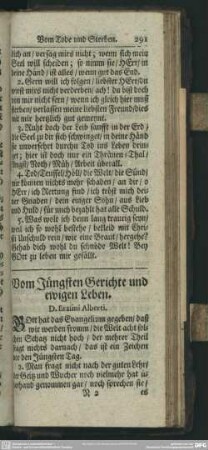 Vom Tode und Sterben. 291
ich an / versag mirs nicht; wenn sich mein
Seel will scheiden; so nimm sie / HErr / in
deine Händ; ist alles / wenn gut das End.
2. Gern will ich folgen / liebster HErr / du
wirst mirs nicht verderben / ach! du bist doch
von mir nicht fern / wenn ich gleich hier muß
sterben / verlassen meine liebsten Freund / die
mit mir herzlich gut gemeynt.
3. Ruht doch der Leib sanfft in der Erd /
die Seel zu dir sich schwinget; in deine Händ
sie unversehrt durchn Tod ins Leben dringet;
hier ist doch nur ein Thränen-Thal /
Angst / Noth / Müh / Arbeit überall.
4. Tod / Teuffel / Höll / die Welt / die Sünd /
mir können nichts mehr schaden / an dir / o
HErr / ich Rettung find / ich tröst mich deiner
Gnaden / dein einger Sohn / aus Lieb
und Huld / für mich bezahlt hat alle Schuld.
5. Was wolt ich denn lang traurig seyn /
weil ich so wohl bestehe / bekleid mit Christi
Unschuld rein / wie eine Braut hergehe?
Gehab dich wohl du schnöde Welt / bey
GOtt zu leben mir gefällt.
Vom Jüngsten Gerichte und
ewigen Leben.
D. Erasmi Alberti.
GOtt hat das Evangelium gegeben / daß
wir werden fromm / die Welt acht solchen
Schatz nicht hoch / der mehrer Theil
fragt nichts darnach / das ist ein Zeichen
vor den Jüngsten Tag.
2. Man fragt nicht nach der guten Lehr /
der Geitz und Wucher noch vielmehr hat überhand
genommen gar / noch sprechen sie /
N 2 es